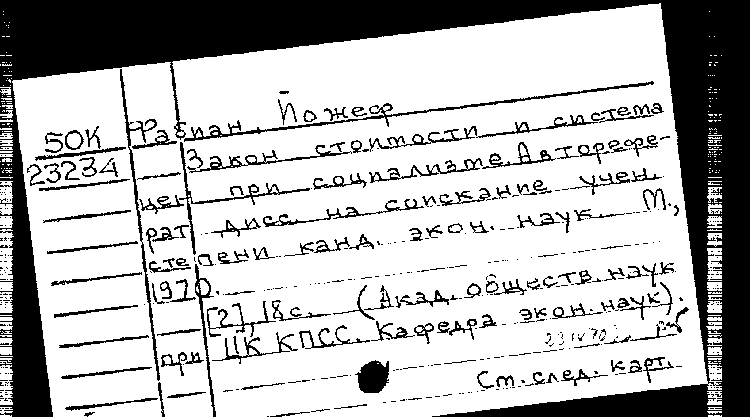 50К Фабиан, Йожеф
23234 Закон стоимости и система
цен при социализме. Авторефе-
рат дисс. на соискание учен.
степени канд. экон. наук. М.,
1970.
[2], 18 с. (Акад. обществ. наук
при ЦК КПСС. Кафедра экон. наук).
См. след. карт.